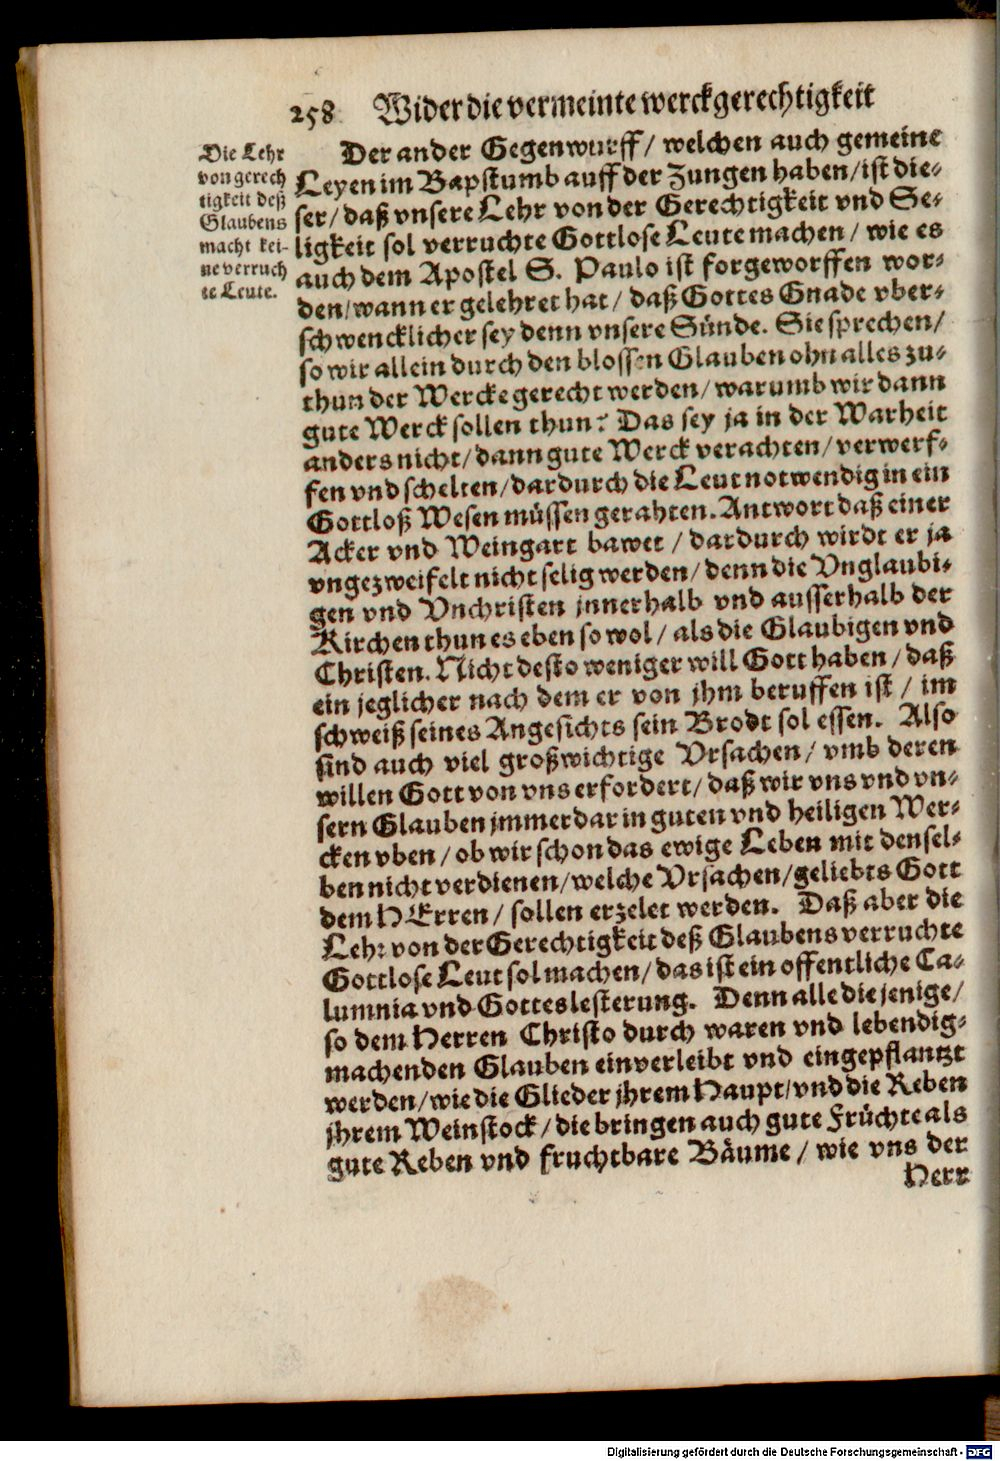 258 Wider die vermeinte werckgerechtigkeit
Die Lehr
von gerech
tigkeit deß
Glaubens
macht kei-
ne verruch
te Leute.
Der ander Gegenwurff / welchen auch gemeine
Leyen im Bapstumb auff der Zungen haben / ist die-
ser / daß vnsere Lehr von der Gerechtigkeit vnd Se-
ligkeit sol verruchte Gottlose Leute machen / wie es
auch dem Apostel S. Paulo ist forgeworffen wor-
den / wann er gelehret hat / daß Gottes Gnade vber-
schwencklicher sey denn vnsere Sünde. Sie sprechen /
so wir allein durch den blossen Glauben ohn alles zu-
thun der Wercke gerecht werden / warumb wir dann
gute Werck sollen thun? Das sey ja in der Warheit
anders nicht / dann gute Werck verachten / verwerf-
fen vnd schelten / dardurch die Leut notwendig in ein
Gottloß Wesen müssen gerahten. Antwort daß einer
Acker vnd Weingart bawet / dardurch wirdt er ja
vngezweifelt nicht selig werden / denn die Vnglaubi-
gen vnd Vnchristen jnnerhalb vnd ausserhalb der
Kirchen thun es eben so wol / als die Glaubigen vnd
Christen. Nicht desto weniger will Gott haben / daß
ein jeglicher nach dem er von jhm beruffen ist / im
schweiß seines Angesichts sein Brodt sol essen. Also
sind auch viel großwichtige Vrsachen / vmb deren
willen Gott von vns erfordert / daß wir vns vnd vn-
sern Glauben jmmerdar in guten vnd heiligen Wer-
cken vben / ob wir schon das ewige Leben mit densel-
ben nicht verdienen / welche Vrsachen / geliebts Gott
dem HErren / sollen erzelet werden. Daß aber die
Lehr von der Gerechtigkeit deß Glaubens verruchte
Gottlose Leut sol machen / das ist ein offentliche Ca-
lumnia vnd Gotteslesterung. Denn alle die jenige /
so dem Herren Christo durch waren vnd lebendig-
machenden Glauben einverleibt vnd eingepflantzt
werden / wie die Glieder jhrem Haupt / vnd die Reben
jhrem Weinstock / die bringen auch gute Früchte als
gute Reben vnd fruchtbare Bäume / wie vns der
Herr
Digitalisierung gefördert durch die Deutsche Forschungsgemeinschaft - DFG